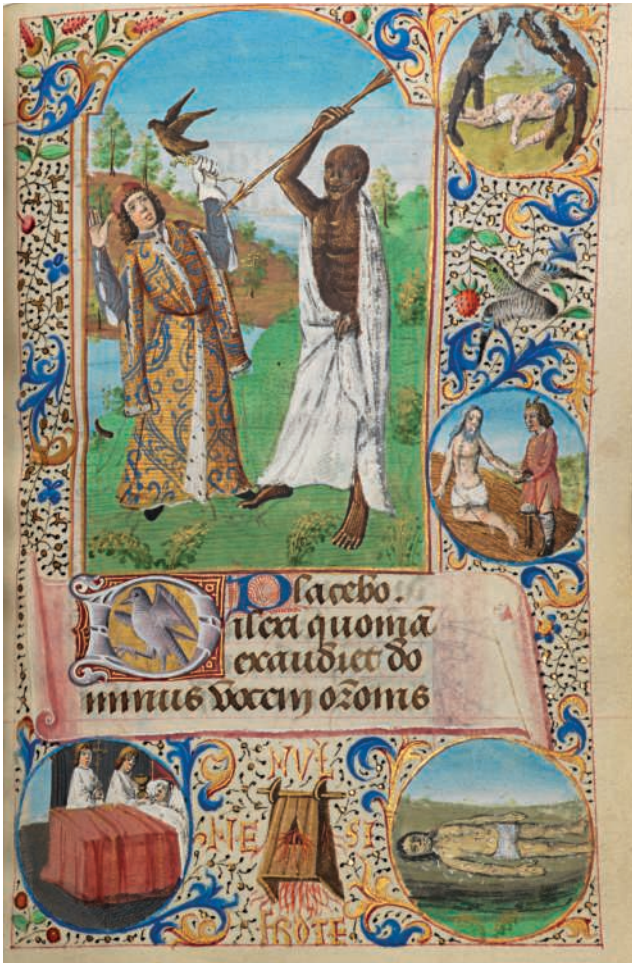 Placebo.
Dilexi quoniã
exaudiet do
minus vocem orõnis
NUL
NE SI
FROTE